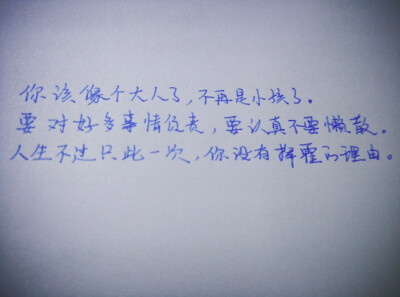 你该像个大人了,不再是小孩了。
要对好多事情负责,要认真不要懒散。
人生不过只此一次,你没有挥霍的理由。